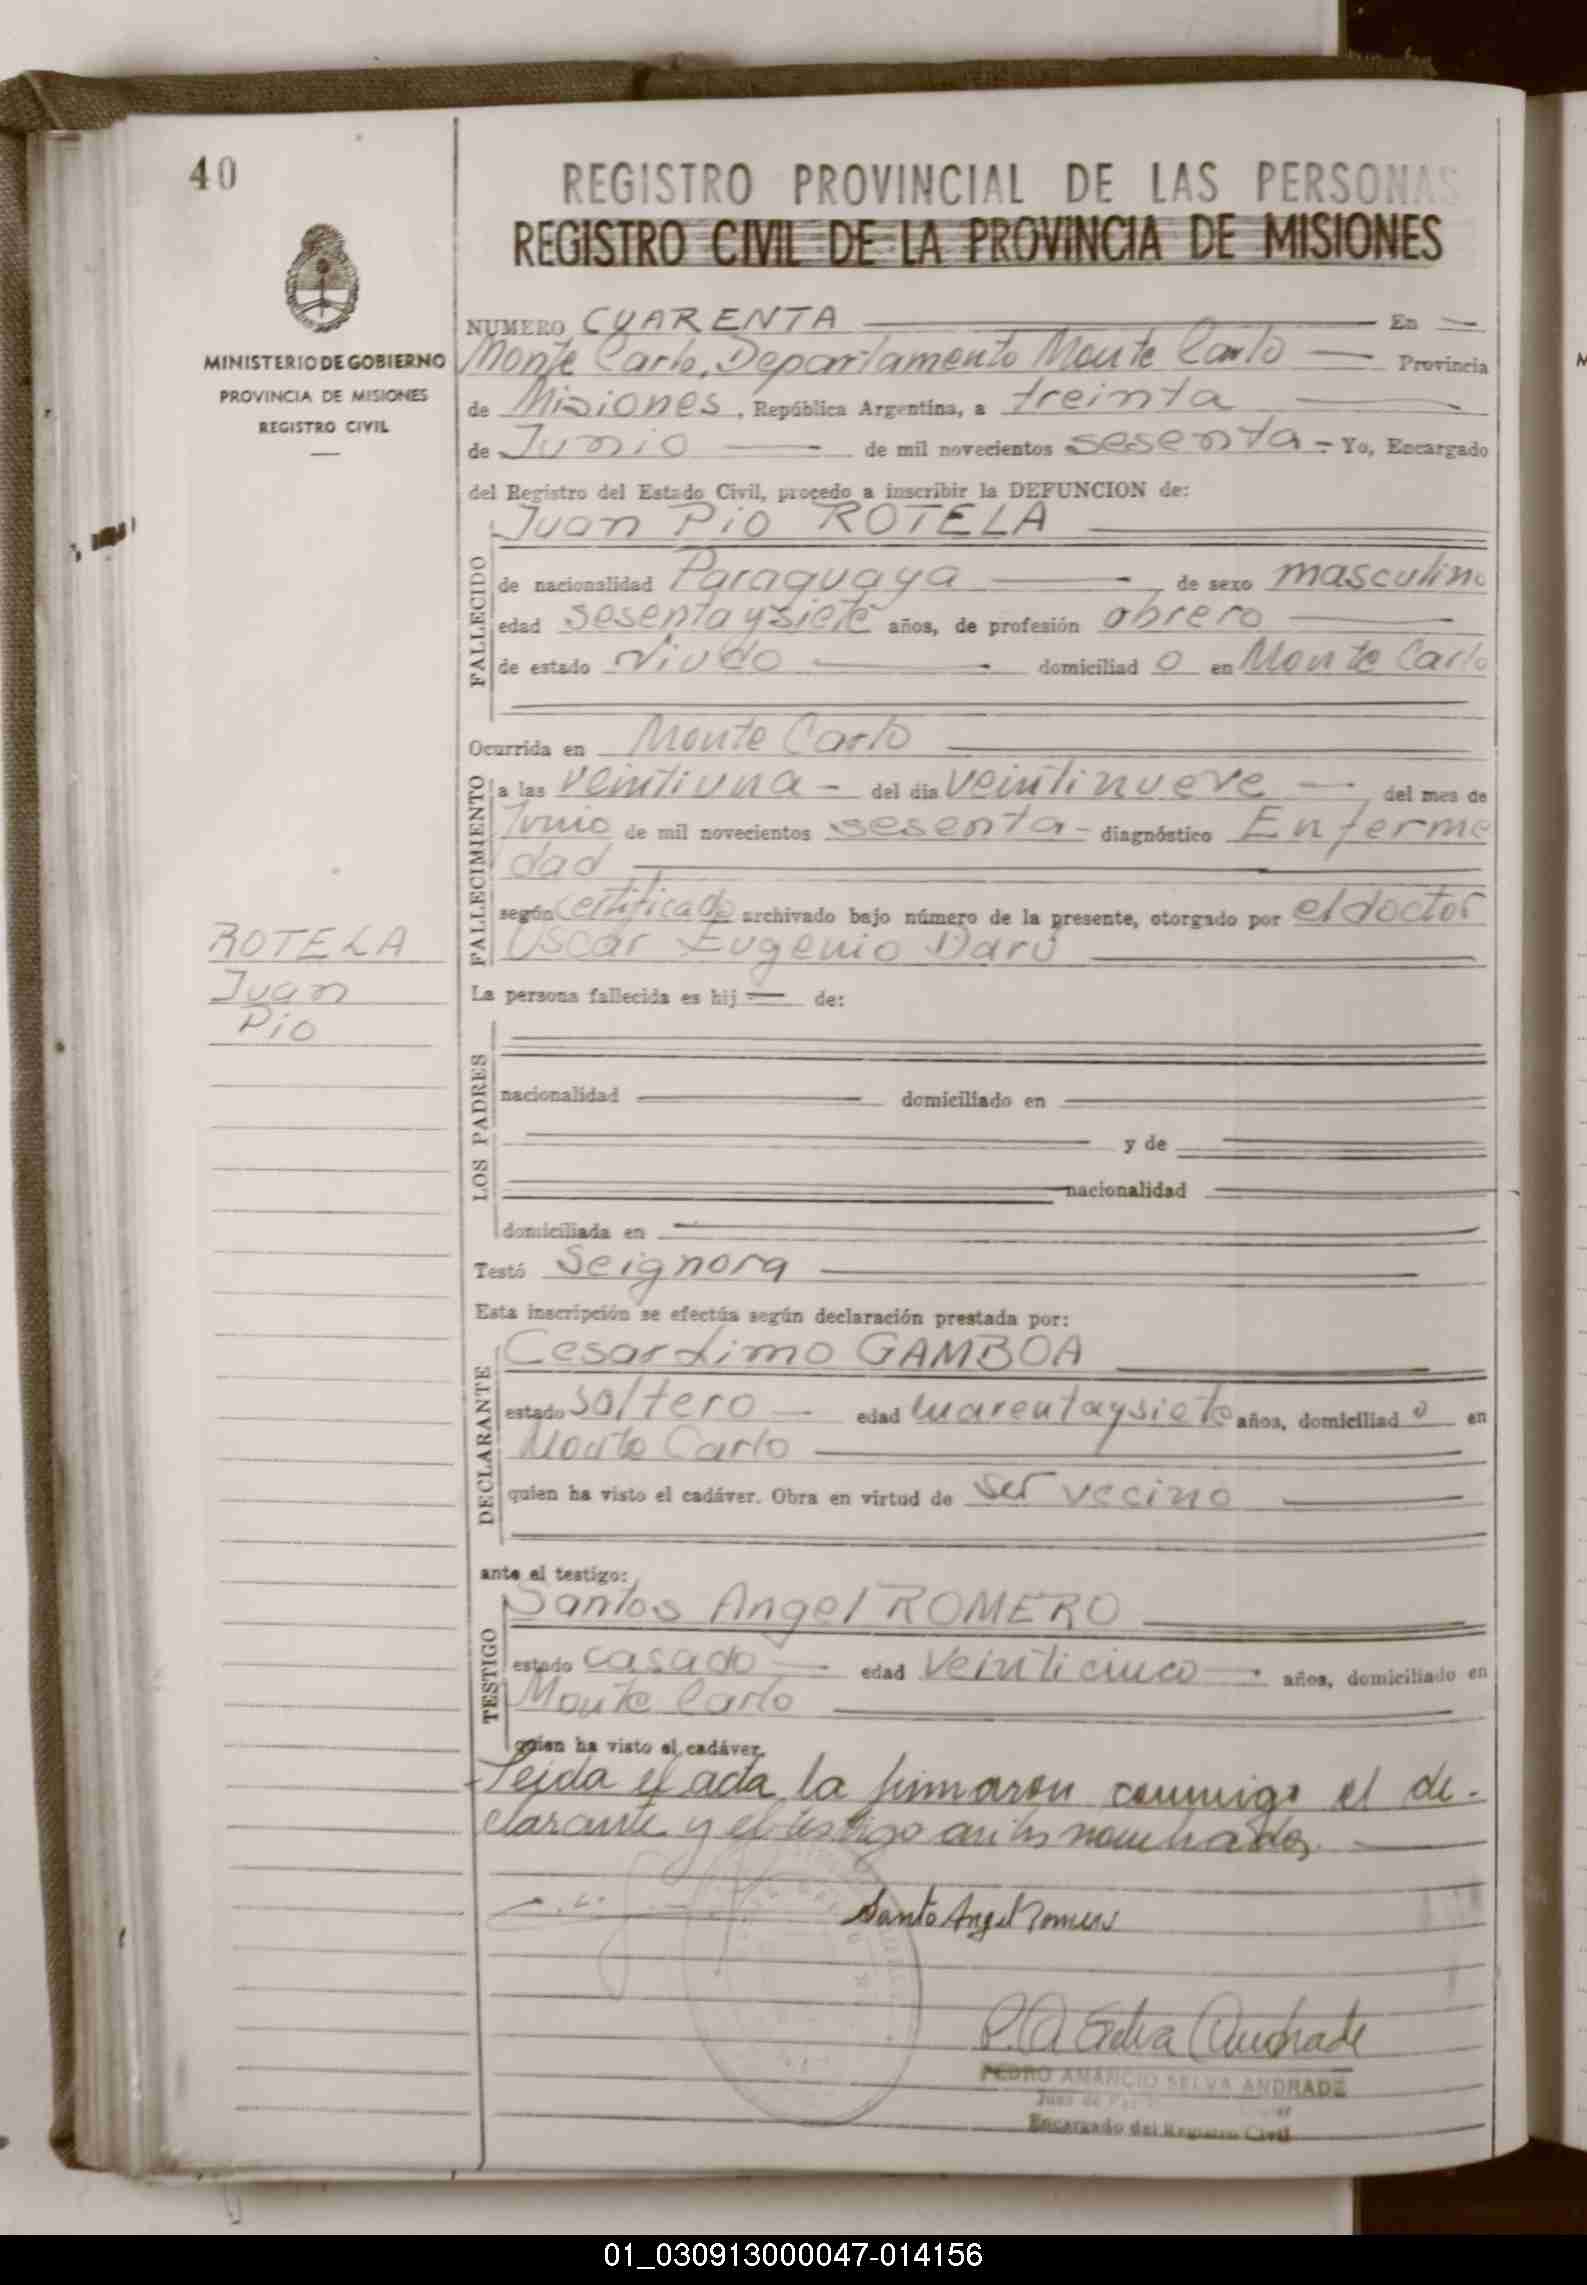 40
REGISTRO PROVINCIAL DE LAS PERSONAS
REGISTRO CIVIL DE LA PROVINCIA DE MISIONES
MINISTERIO DE GOBIERNO
PROVINCIA DE MISIONES
REGISTRO CIVIL
NUMERO CUARENTA En
Monte Carlo, Departamento Monte Carlo Provincia
de Misiones, República Argentina, a treinta
de Junio de mil novecientos sesenta - Yo, Encargado
del Registro del Estado Civil, procedo a inscribir la DEFUNCION de:
FALLECIDO
Juan Pio ROTELA
de nacionalidad Paraguaya de sexo masculino
edad sesentaysiete años, de profesión obrero
de estado viudo domiciliad o en Monte Carlo
Ocurrida en Monte Carlo
FALLECIMIENTO
a las veintiuna - del dia veintinueve del mes de
Junio de mil novecientos sesenta - diagnóstico Enferme
dad
según certificado archivado bajo número de la presente, otorgado por el doctor
Oscar Eugenio Darú
ROTELA
Juan
Pio
La persona fallecida es hij de:
LOS PADRES
nacionalidad domiciliado en
y de
nacionalidad
domiciliada en
Testó Seignora
Esta inscripción se efectúa según declaración prestada por:
DECLARANTE
Cesar Limo GAMBOA
estado soltero edad cuarentaysiete años, domiciliad o en
Monte Carlo
quien ha visto el cadáver. Obra en virtud de ser vecino
ante el testigo:
TESTIGO
Santos Angel ROMERO
estado casado edad veinticinco años, domiciliado en
Monte Carlo
quien ha visto el cadáver.
Leida el acta la firmaron conmigo el de-
clarante y el testigo antes nombrados.
Santo Angel Romero
P. A. Selva Andrade
PEDRO AMANCIO SELVA ANDRADE
Juez de Paz
Encargado del Registro Civil
01_030913000047-014156